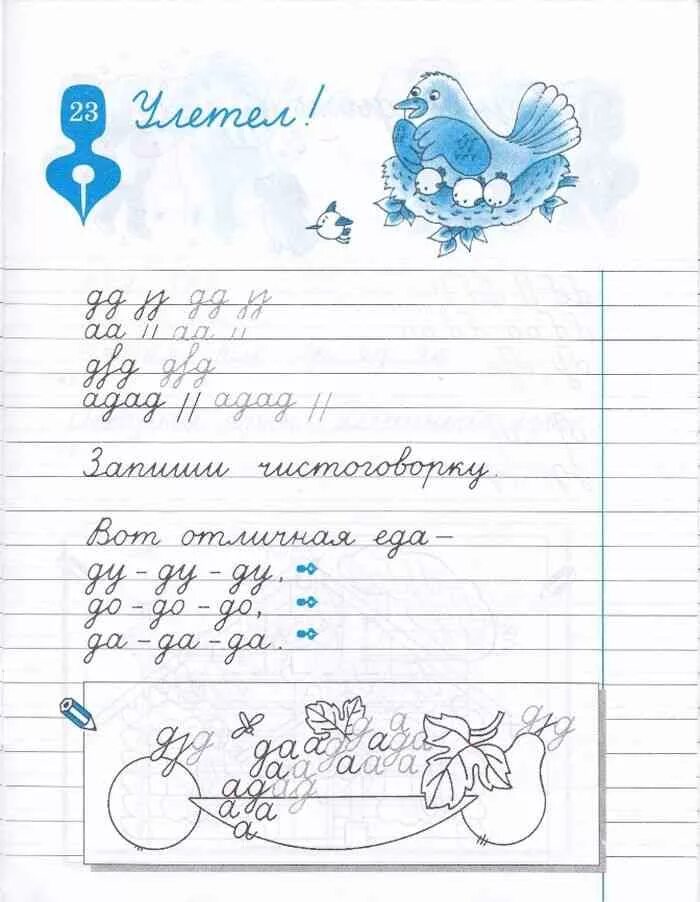 23
Улетел!
дд дд
аа аа
д д д д
адад адад
Запиши чистоговорку.
Вот отличная еда –
ду – ду – ду,
до – до – до,
да – да – да.
д а
д д да ад ада д д
аа ааа а
адад
а а
а